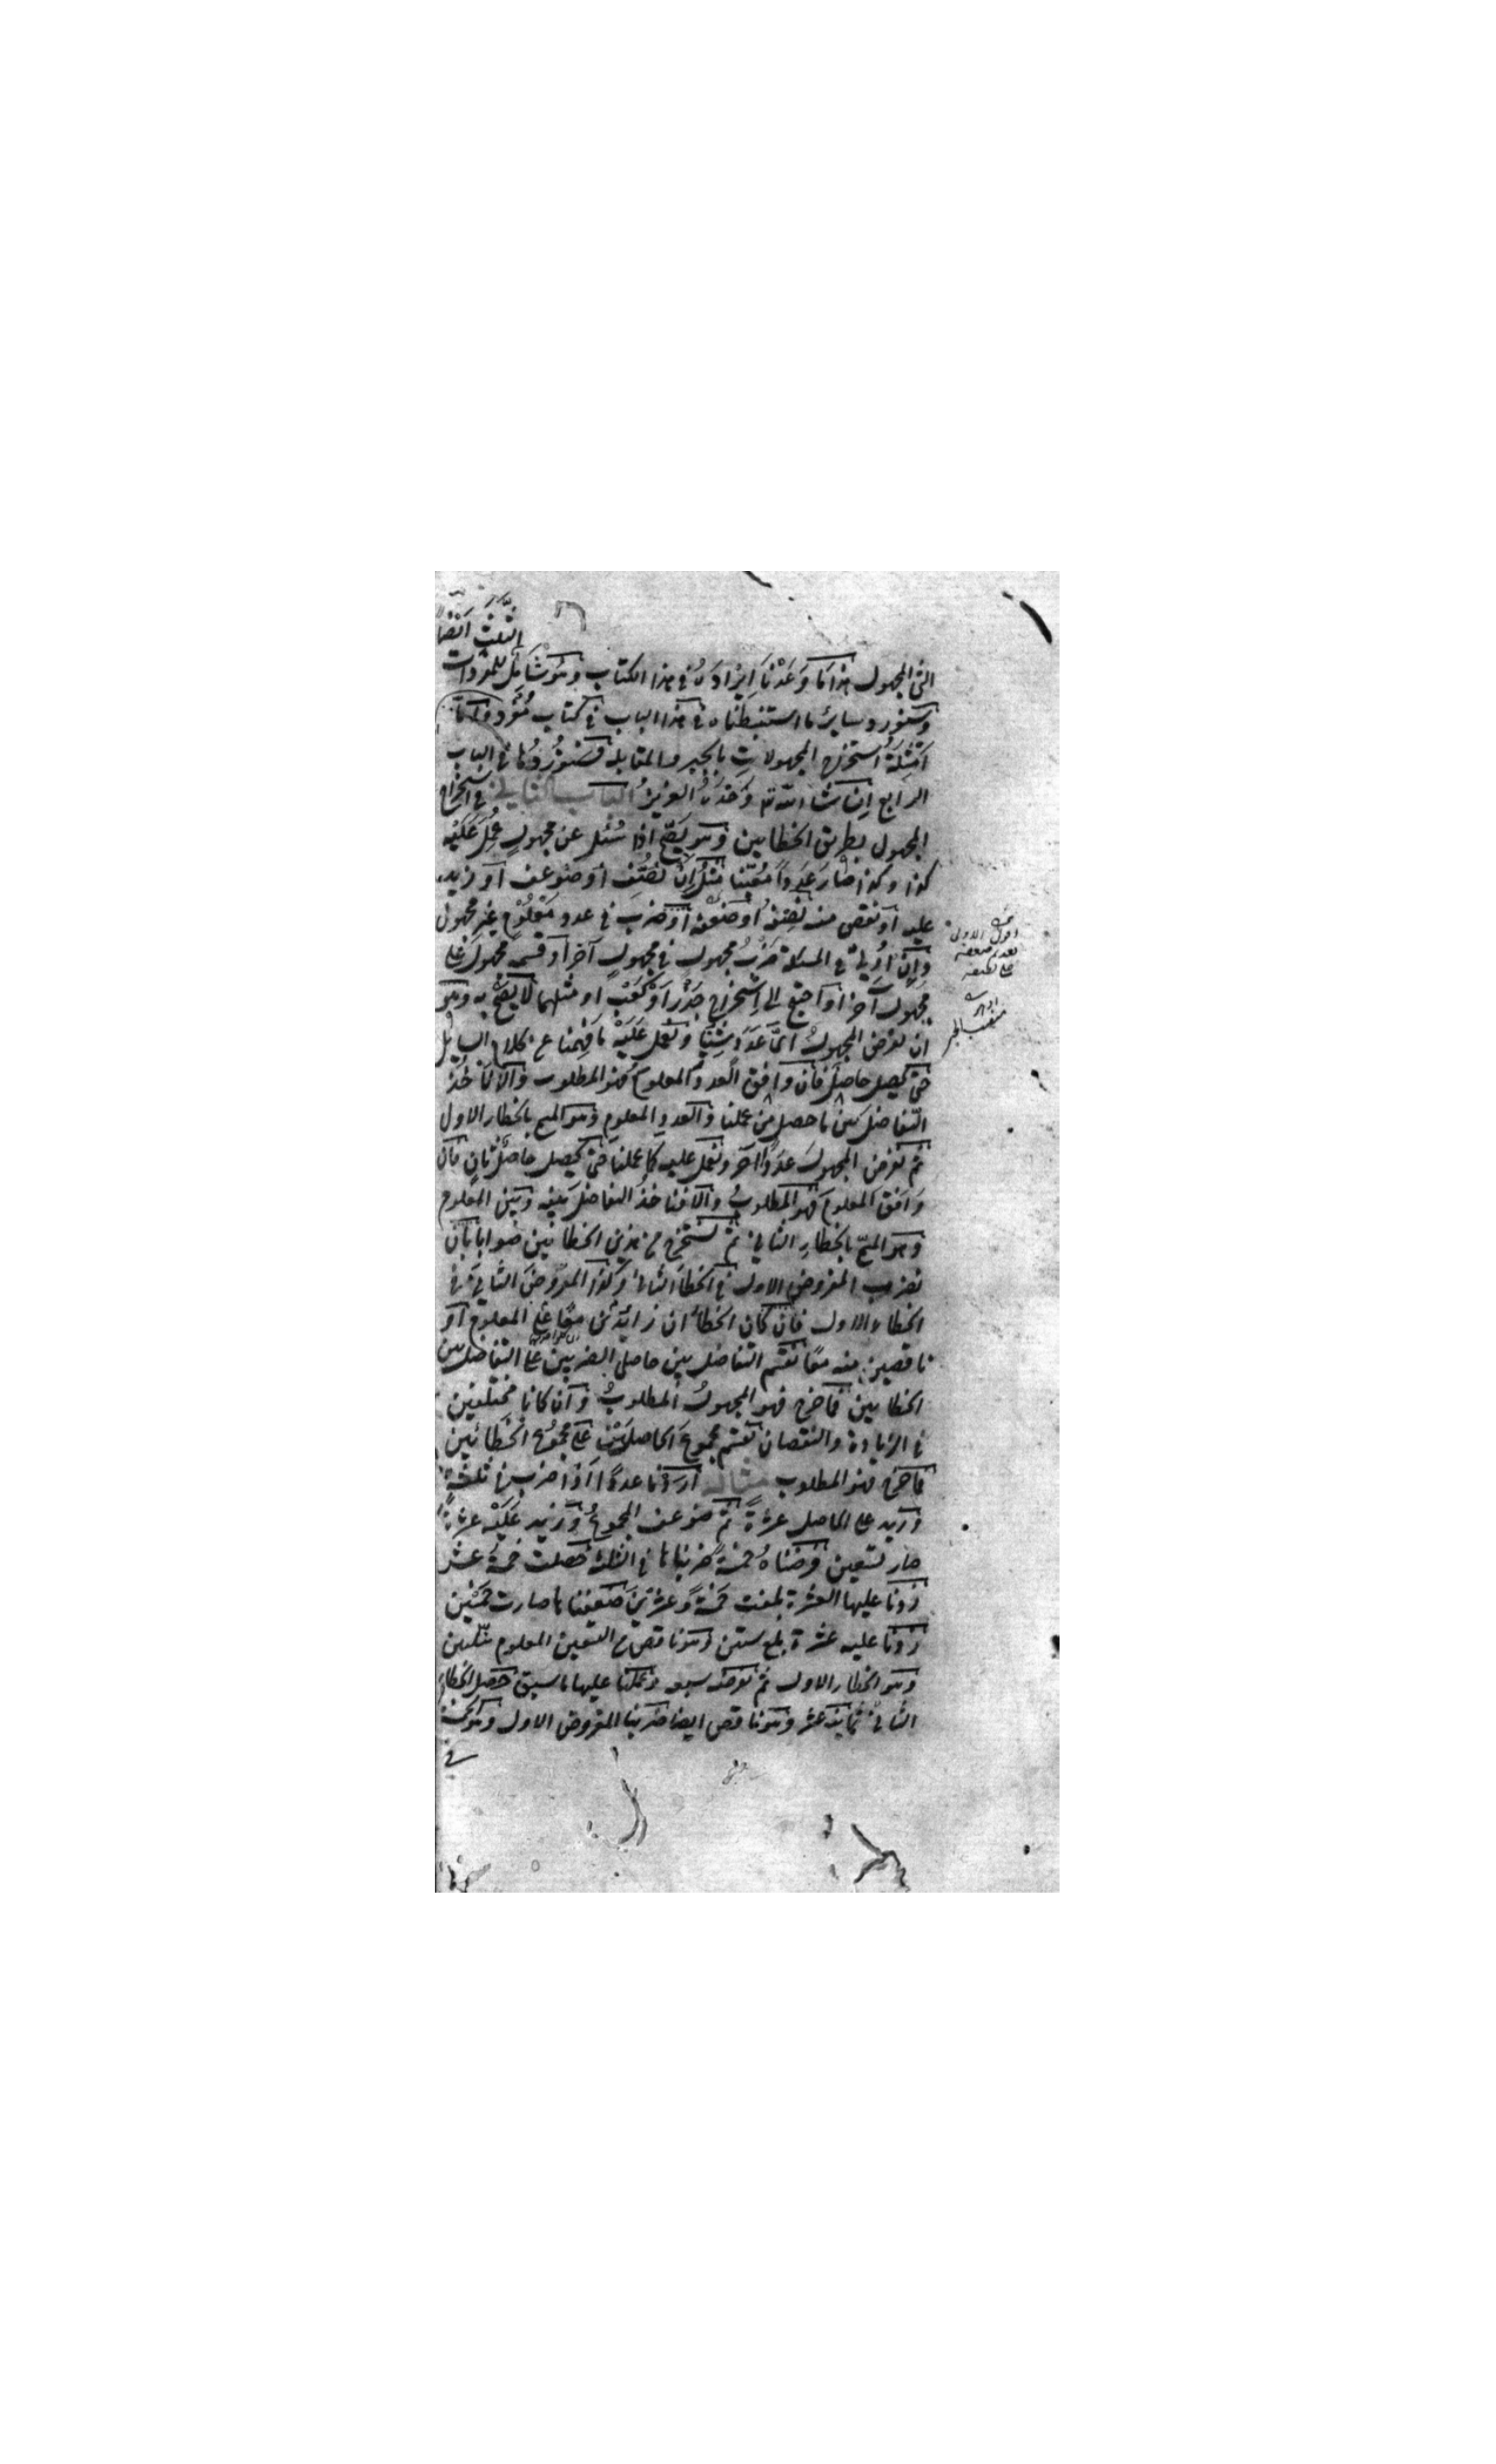 الى المجهول هذا ما وعدنا ايراده في هذا الكتاب وهو شامل للمفردات
وسنورد ساير ما استنبطناه في هذا الباب في كتاب مفرد واما
امثلة استخراج المجهولات بالجبر والمقابلة فسنوردها في الباب
الرابع ان شاء الله تعالى وحده العزيز الباب الثاني في استخراج
المجهول بطريق الخطايين وهو يصح اذا سئل عن مجهول عمل عليه
كذا وكذا صار عددا معينا مثل ان نصف او ضوعف او زيد
عليه او نقص منه نصفه او ضعفه او ضرب في عدد معلوم غير مجهول
وان اورد في المسئلة ضرب مجهول في مجهول آخر او قسمة مجهول على
مجهول آخر او احتيج الى استخراج جذر او كعب او مثلهما لا يصح به وهو
ان نفرض المجهول اي عدد شئنا ونعمل عليه ما فهمنا من كلام السايل
حتى يحصل حاصل فان وافق العدد المعلوم فهو المطلوب والا نأخذ
التفاضل بين ما حصل من عملنا والعدد المعلوم وهو المسمى بالخطاء الاول
ثم نفرض المجهول عددا آخر ونعمل عليه كما عملنا حتى يحصل حاصل ثان فان
وافق المعلوم فهو المطلوب والا فنأخذ التفاضل بينه وبين المعلوم
وهو المسمى بالخطاء الثاني ثم نستخرج من هذين الخطائين صوابا بان
نضرب المفروض الاول في الخطأ الثاني وكذا المفروض الثاني في
الخطاء الاول فان كان الخطأان زائدين معا على المعلوم او
ناقصين منه معا نقسم التفاضل بين حاصلي الضربين على التفاضل بين
الخطايين فما خرج فهو المجهول المطلوب وان كانا مختلفين
في الزيادة والنقصان نقسم مجموع الحاصلين على مجموع الخطائين
فما خرج فهو المطلوب مثاله اردنا عددا اذا ضرب في ثلثة
وزيد على الحاصل عشرة ثم ضوعف المجموع وزيد عليه عشرة
صار تسعين فرضناه خمسة ضربناها في الثلثة حصلت خمسة عشر
زدنا عليها العشرة بلغت خمسة وعشرين ضعفناها صارت خمسين
زدنا عليه عشرة بلغ ستين وهو ناقص من التسعين المعلوم بثلثين
وهو الخطاء الاول ثم نفرضه سبعة وعملنا عليها ما سبق حصل الخطاء
الثاني ثمانية عشر وهو ناقص ايضا ضربنا المفروض الاول وهو خمسة
في